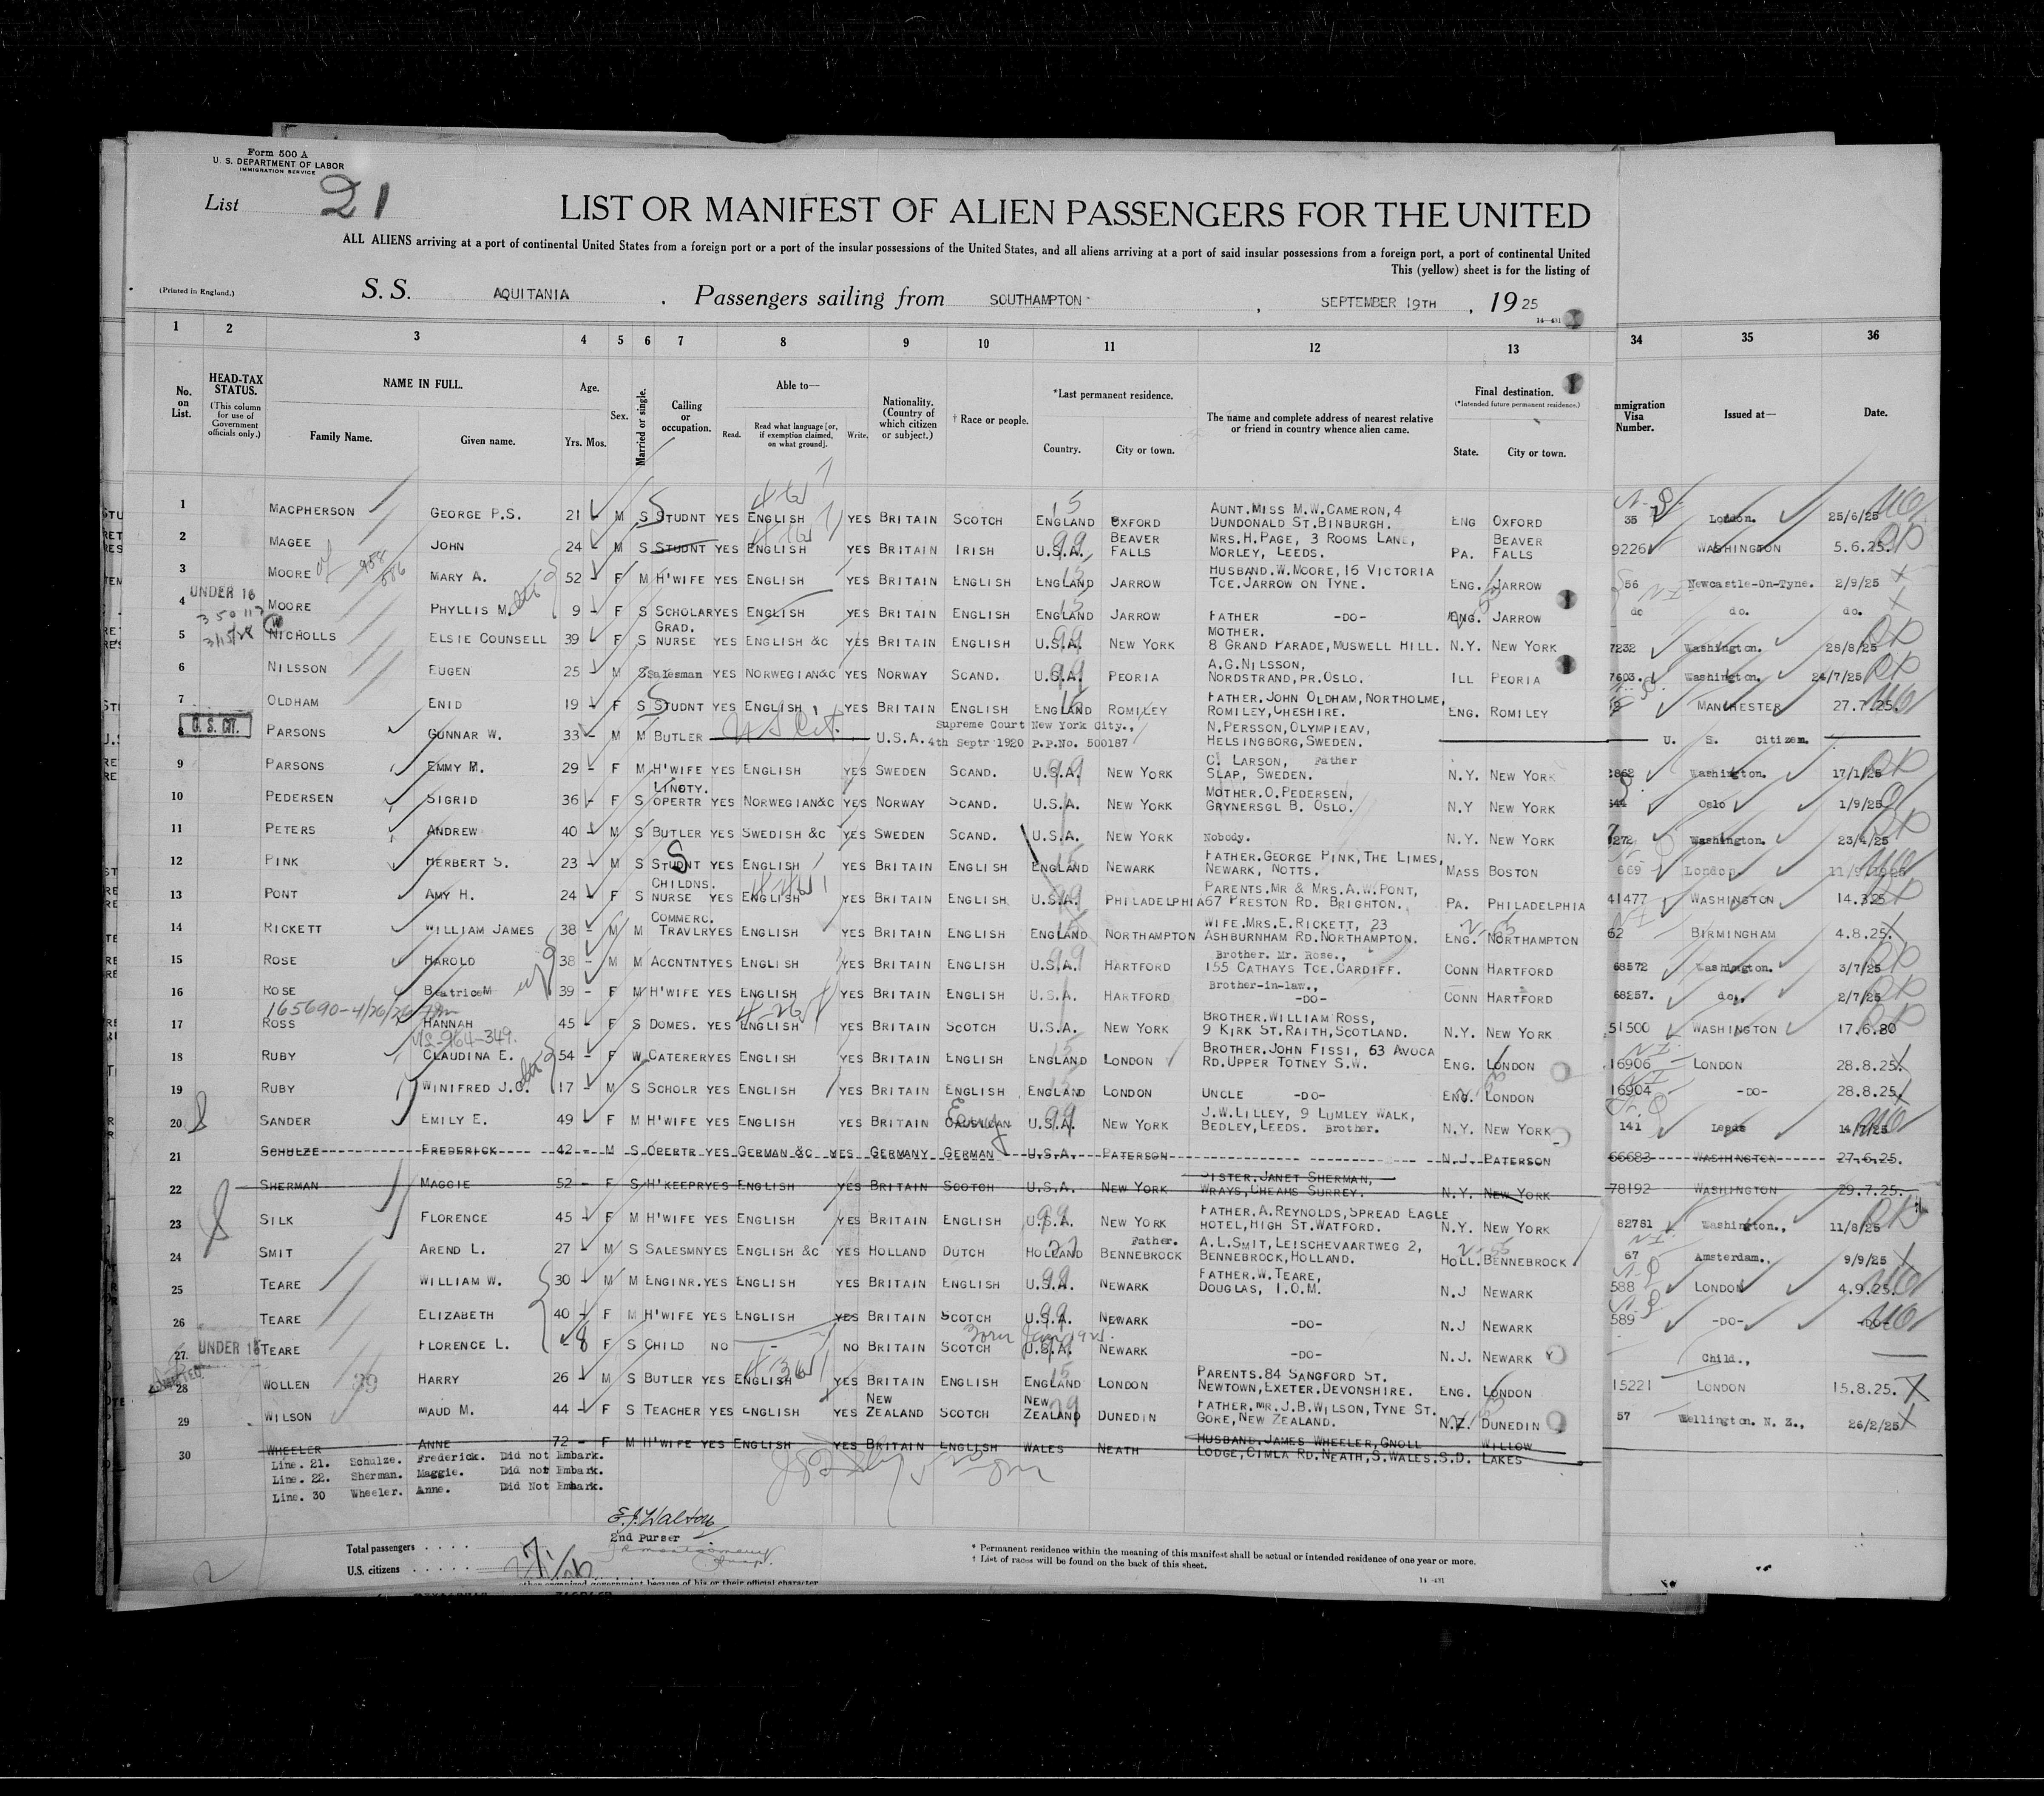 Form 500 A
U. S. DEPARTMENT OF LABOR
IMMIGRATION SERVICE
List 21
LIST OR MANIFEST OF ALIEN PASSENGERS FOR THE UNITED
ALL ALIENS arriving at a port of continental United States from a foreign port or a port of the insular possessions of the United States, and all aliens arriving at a port of said insular possessions from a foreign port, a port of continental United
This (yellow) sheet is for the listing of
(Printed in England.)
S. S. AQUITANIA . Passengers sailing from SOUTHAMPTON , SEPTEMBER 19TH , 19 25
14-431
1 2 3 4 5 6 7 8 9 10 11 12 13 34 35 36
No. on List.
HEAD-TAX STATUS.
(This column for use of Government officials only.)
NAME IN FULL.
Family Name. Given name.
Age.
Yrs. Mos.
Sex.
Married or single.
Calling or occupation.
Able to—
Read. Read what language [or, if exemption claimed, on what ground]. Write.
Nationality. (Country of which citizen or subject.)
† Race or people.
*Last permanent residence.
Country. City or town.
The name and complete address of nearest relative or friend in country whence alien came.
Final destination.
(*Intended future permanent residence.)
State. City or town.
mmigration Visa Number.
Issued at—
Date.
1 MACPHERSON GEORGE P.S. 21 - M S STUDNT YES ENGLISH YES BRITAIN SCOTCH ENGLAND OXFORD AUNT.MISS M.W.CAMERON,4 DUNDONALD ST.BINBURGH. ENG OXFORD 35 London. 25/6/25
2 MAGEE JOHN 24 M S STUDNT YES ENGLISH YES BRITAIN IRISH U.S.A. BEAVER FALLS MRS.H.PAGE, 3 ROOMS LANE, MORLEY, LEEDS. PA. BEAVER FALLS 9226 WASHINGTON 5.6.25.
3 MOORE MARY A. 52 F M H'WIFE YES ENGLISH YES BRITAIN ENGLISH ENGLAND JARROW HUSBAND.W.MOORE,16 VICTORIA TCE.JARROW ON TYNE. ENG. JARROW 56 Newcastle-On-Tyne. 2/9/25
UNDER 16
4 MOORE PHYLLIS M. 9 - F S SCHOLAR YES ENGLISH YES BRITAIN ENGLISH ENGLAND JARROW FATHER -DO- ENG. JARROW do do. do.
5 NICHOLLS ELSIE COUNSELL 39 F S GRAD. NURSE YES ENGLISH &C YES BRITAIN ENGLISH U.S.A. NEW YORK MOTHER. 8 GRAND PARADE, MUSWELL HILL. N.Y. NEW YORK 7232 Washington. 28/8/25
6 NILSSON EUGEN 25 M S Salesman YES NORWEGIAN&C YES NORWAY SCAND. U.S.A. PEORIA A.G.NILSSON, NORDSTRAND,PR.OSLO. ILL PEORIA 7603. Washington. 24/7/25
7 OLDHAM ENID 19 F S STUDNT YES ENGLISH YES BRITAIN ENGLISH ENGLAND ROMILEY FATHER,JOHN OLDHAM,NORTHOLME, ROMILEY,CHESHIRE. ENG. ROMILEY MANCHESTER 27.7.25.
U. S. CIT.
8 PARSONS GUNNAR W. 33 M M BUTLER U S Cit. U.S.A. Supreme Court New York City., 4th Septr 1920 P.P.No. 500187 N.PERSSON,OLYMPIEAV, HELSINGBORG,SWEDEN. U. S. Citizen.
9 PARSONS EMMY M. 29 - F M H'WIFE YES ENGLISH YES SWEDEN SCAND. U.S.A. NEW YORK C. LARSON, Father SLAP, SWEDEN. N.Y. NEW YORK 2862 Washington. 17/1/25
10 PEDERSEN SIGRID 36 - F S LINOTY. OPERTR YES NORWEGIAN&C YES NORWAY SCAND. U.S.A. NEW YORK MOTHER.O.PEDERSEN, GRYNERSGL B. OSLO. N.Y NEW YORK 544 Oslo 1/9/25
11 PETERS ANDREW 40 M S BUTLER YES SWEDISH &C YES SWEDEN SCAND. U.S.A. NEW YORK Nobody. N.Y. NEW YORK 272 Washington. 23/4/25
12 PINK HERBERT S. 23 - M S STUDNT YES ENGLISH YES BRITAIN ENGLISH ENGLAND NEWARK FATHER.GEORGE PINK,THE LIMES, NEWARK, NOTTS. MASS BOSTON 669 London.
13 PONT AMY H. 24 F S CHILDNS. NURSE YES ENGLISH YES BRITAIN ENGLISH U.S.A. PHILADELPHIA PARENTS.MR & MRS.A.W.PONT, 67 PRESTON RD. BRIGHTON. PA. PHILADELPHIA 41477 WASHINGTON 14.3.25
14 RICKETT WILLIAM JAMES 38 - M M COMMERC. TRAVLR YES ENGLISH YES BRITAIN ENGLISH ENGLAND NORTHAMPTON WIFE.MRS.E.RICKETT, 23 ASHBURNHAM RD.NORTHAMPTON. ENG. NORTHAMPTON 62 BIRMINGHAM 4.8.25.
15 ROSE HAROLD 38 - M M ACCNTNT YES ENGLISH YES BRITAIN ENGLISH U.S.A. HARTFORD Brother. Mr. Rose., 155 CATHAYS TCE.CARDIFF. CONN HARTFORD 68572 Washington. 3/7/25
16 ROSE Beatrice M 39 - F M H'WIFE YES ENGLISH YES BRITAIN ENGLISH U.S.A. HARTFORD Brother-in-law., -DO- CONN HARTFORD 68257. do., 2/7/25
165690-4/26/26
17 ROSS HANNAH 45 - F S DOMES. YES ENGLISH YES BRITAIN SCOTCH U.S.A. NEW YORK BROTHER.WILLIAM ROSS, 9 KIRK ST.RAITH,SCOTLAND. N.Y. NEW YORK 51500 WASHINGTON 17.6.80
18 RUBY CLAUDINA E. 54 - F W CATERER YES ENGLISH YES BRITAIN ENGLISH ENGLAND LONDON BROTHER.JOHN FISSI, 63 AVOCA RD.UPPER TOTNEY S.W. ENG. LONDON 16906 LONDON 28.8.25.
19 RUBY WINIFRED J.C. 17 - M S SCHOLR YES ENGLISH YES BRITAIN ENGLISH ENGLAND LONDON UNCLE -DO- ENG. LONDON 16904 -DO- 28.8.25.
20 SANDER EMILY E. 49 F M H'WIFE YES ENGLISH YES BRITAIN U.S.A. NEW YORK J.W.LILLEY, 9 LUMLEY WALK, BEDLEY,LEEDS. Brother. N.Y. NEW YORK 141 Leeds 14/7/25
21 SCHULZE FREDERICK 42 - M S OPERTR YES GERMAN &C YES GERMANY GERMAN U.S.A. PATERSON N.J. PATERSON 66683 WASHINGTON 27.6.25.
22 SHERMAN MAGGIE 52 - F S H'KEEPR YES ENGLISH YES BRITAIN SCOTCH U.S.A. NEW YORK SISTER.JANET SHERMAN, WRAYS,CHEAMS SURREY. N.Y. NEW YORK 78192 WASHINGTON 29.7.25.
23 SILK FLORENCE 45 - F M H'WIFE YES ENGLISH YES BRITAIN ENGLISH U.S.A. NEW YORK FATHER.A.REYNOLDS,SPREAD EAGLE HOTEL,HIGH ST.WATFORD. N.Y. NEW YORK 82781 Washington., 11/8/25
24 SMIT AREND L. 27 M S SALESMN YES ENGLISH &C YES HOLLAND DUTCH HOLLAND BENNEBROCK Father. A.L.SMIT,LEISCHEVAARTWEG 2, BENNEBROCK,HOLLAND. HOLL. BENNEBROCK 67 Amsterdam., 9/9/25
25 TEARE WILLIAM W. 30 M M ENGINR. YES ENGLISH YES BRITAIN ENGLISH U.S.A. NEWARK FATHER.W.TEARE, DOUGLAS, I.O.M. N.J NEWARK 588 LONDON 4.9.25.
26 TEARE ELIZABETH 40 - F M H'WIFE YES ENGLISH YES BRITAIN SCOTCH U.S.A. NEWARK -DO- N.J NEWARK 589 -DO- -DO-
UNDER 16
27. TEARE FLORENCE L. - 8 F S CHILD NO - NO BRITAIN SCOTCH U.S.A. NEWARK -DO- N.J. NEWARK Child.,
28 WOLLEN 39 HARRY 26 - M S BUTLER YES ENGLISH YES BRITAIN ENGLISH ENGLAND LONDON PARENTS.84 SANGFORD ST. NEWTOWN,EXETER.DEVONSHIRE. ENG. LONDON 15221 LONDON 15.8.25.
29 WILSON MAUD M. 44 - F S TEACHER YES ENGLISH YES NEW ZEALAND SCOTCH NEW ZEALAND DUNEDIN FATHER.MR.J.B.WILSON,TYNE ST. GORE,NEW ZEALAND. N.Z. DUNEDIN 57 Wellington. N. Z., 26/2/25
30 WHEELER ANNE 72 - F M H'WIFE YES ENGLISH YES BRITAIN ENGLISH WALES NEATH HUSBAND.JAMES WHEELER,GNOLL LODGE,CIMLA RD.NEATH,S.WALES. S.D. WILLOW LAKES
Line. 21. Schulze. Frederick. Did not Embark.
Line. 22. Sherman. Maggie. Did not Embark.
Line. 30 Wheeler. Anne. Did Not Embark.
E.J. Walton
2nd Purser
Total passengers . . . .
U.S. citizens . . . . .
* Permanent residence within the meaning of this manifest shall be actual or intended residence of one year or more.
† List of races will be found on the back of this sheet.
14-431
other organized government because of his or their official character